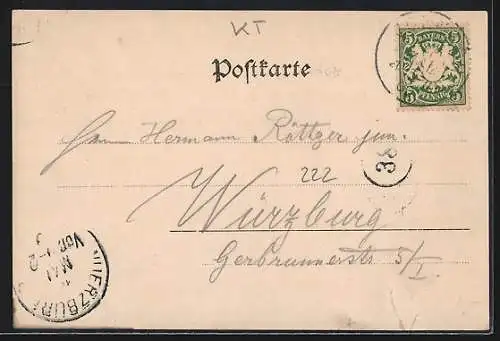 KT
5 BAYERN 5
Postkarte
5 PFENNIG 5
Herrn Hermann Röttger jun.
38
222
Würzburg
Gerbrunnerstr 5/I.
WUERZBURG
MAI
Vor. 1-2